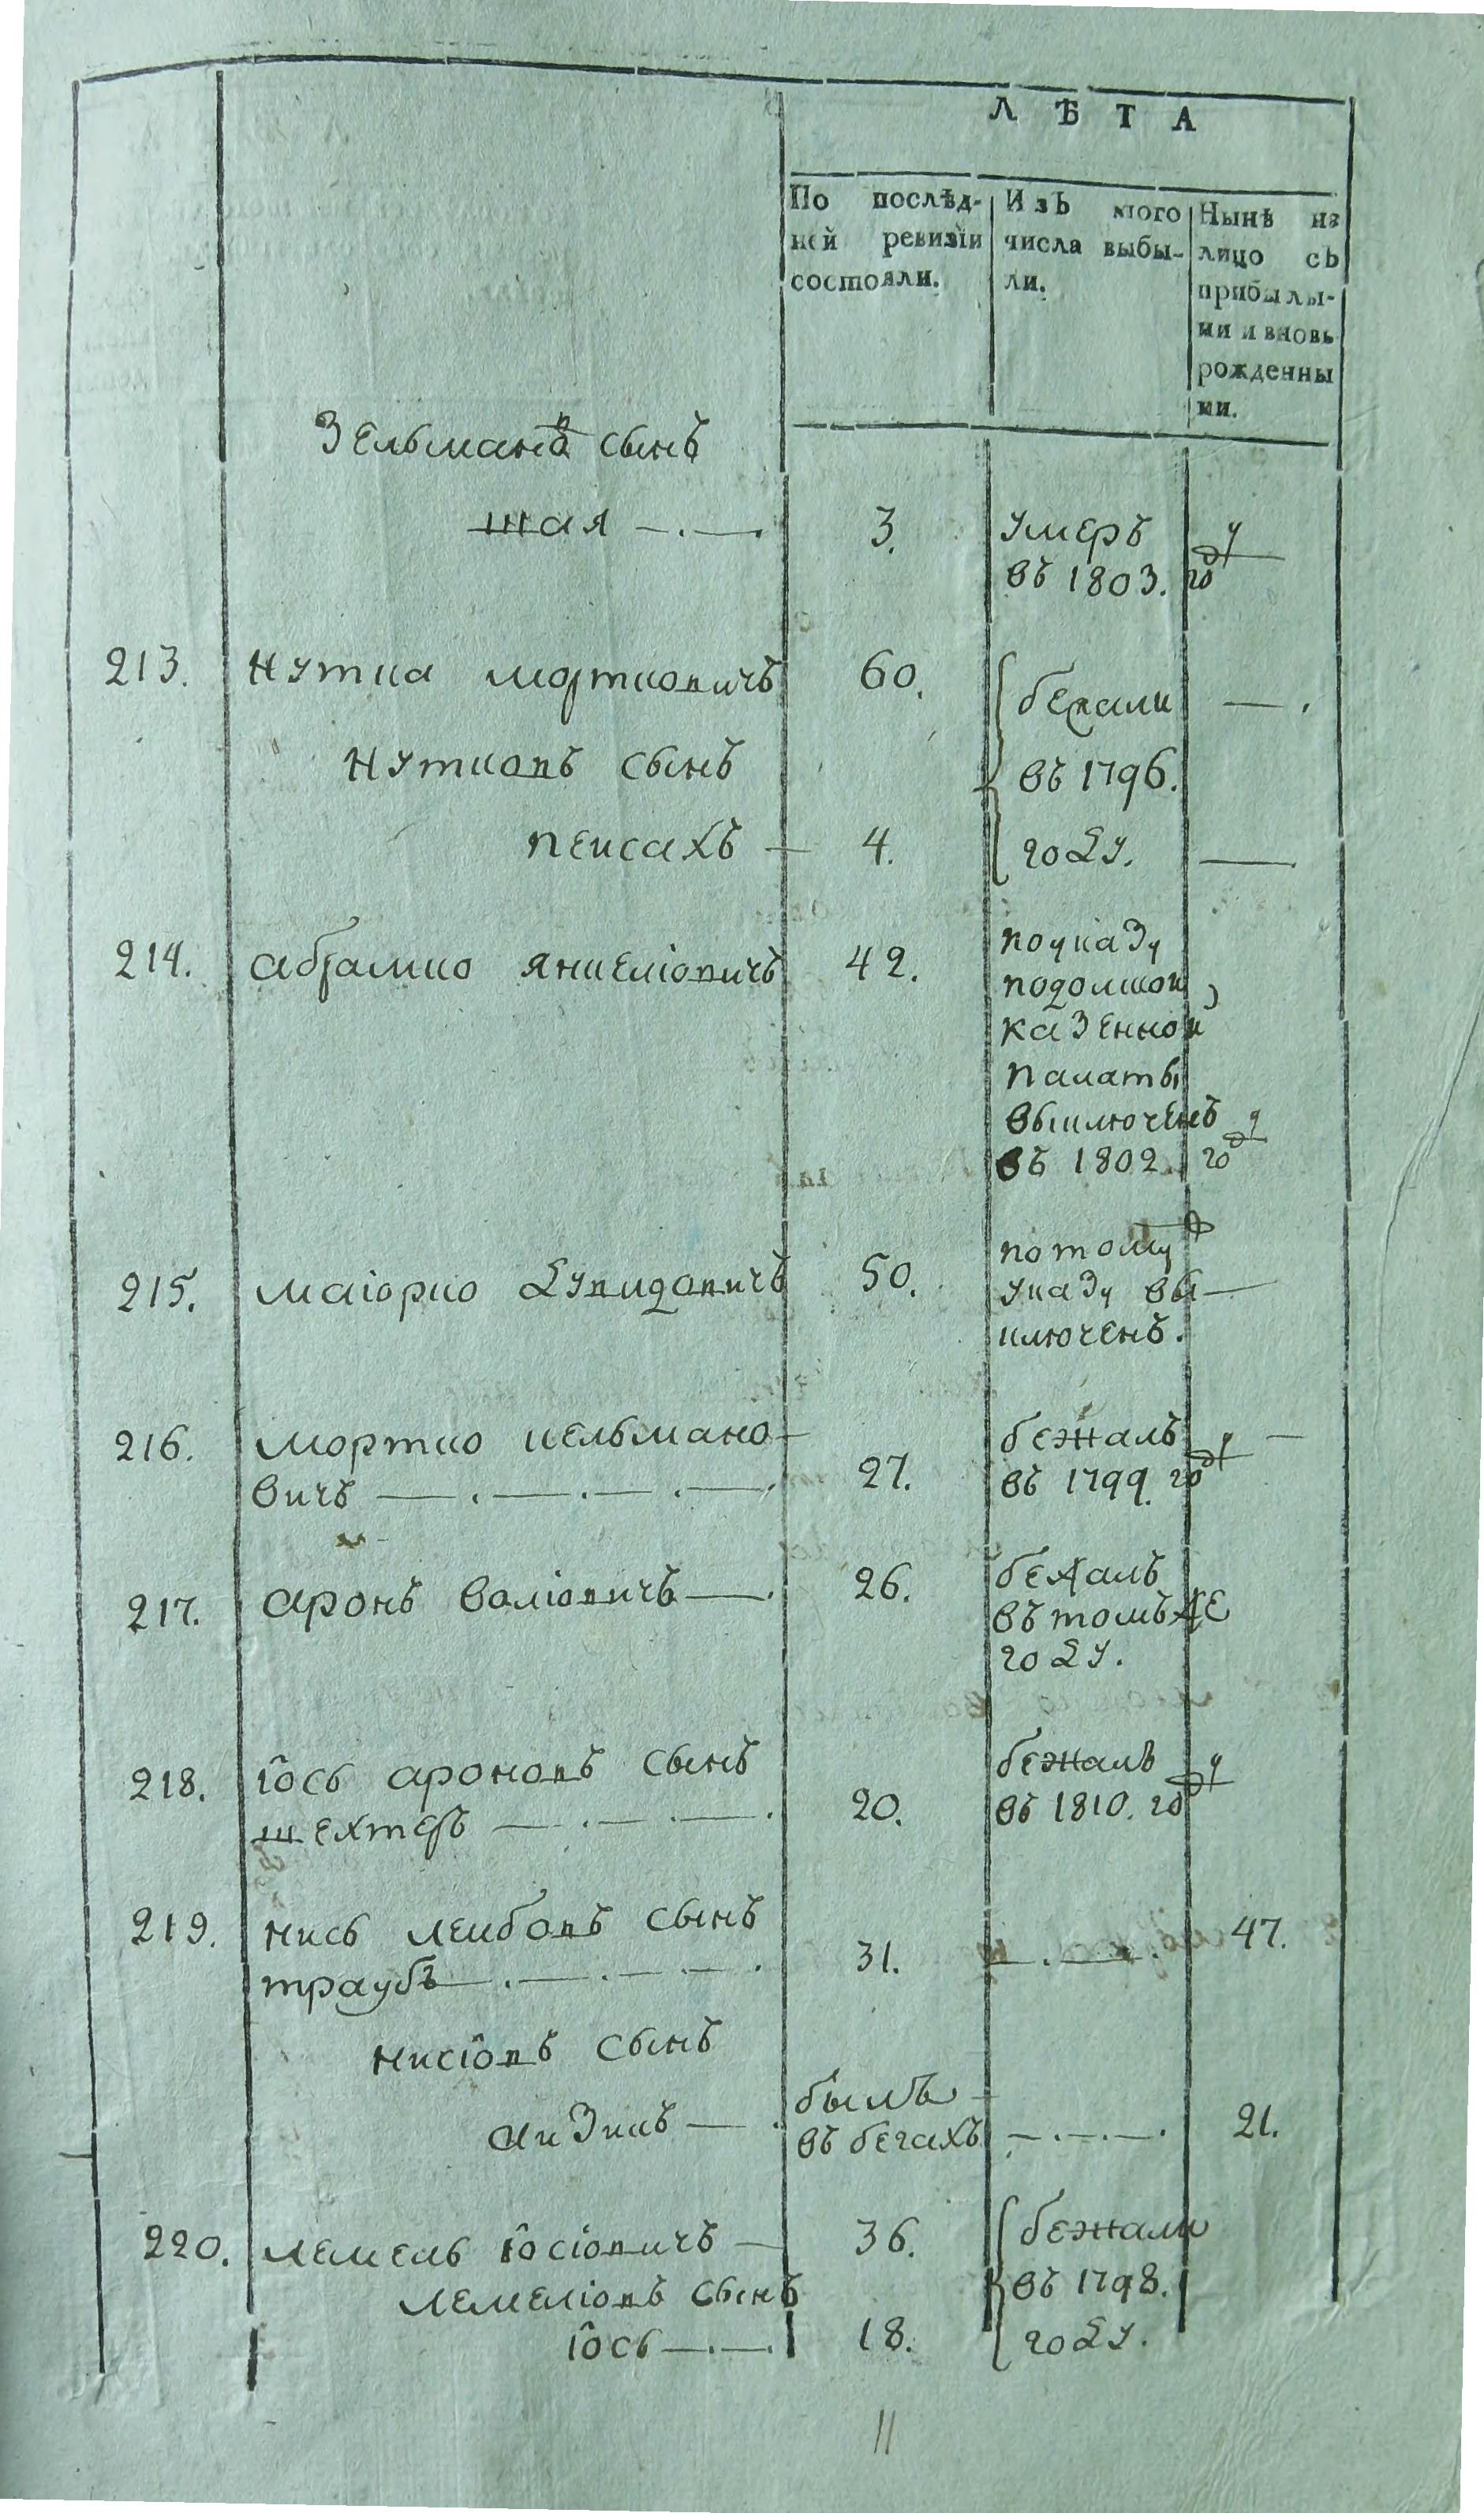 ЛѢТА
По послѣд-
ней ревизіи
состояли.
Изъ того
числа выбы-
ли.
Нынѣ на
лицо съ
прибылы-
ми и вновь
рожденны
ми.
Зельмановъ сынъ
шая 3. умеръ
въ 1803. году
213. нутка мортковичъ 60. бежали
нутковъ сынъ въ 1796.
пейсахъ 4. году.
214. абрамко янкеліовичъ 42. по указу
подолской
казенной
палаты
выключенъ
въ 1802. году
215. маіорко дувидовичъ 50. по тому
указу вы-
ключенъ.
216. мортко кельмано- бежалъ
вичъ 27. въ 1799. году
217. аронъ воліовичъ 26. бежалъ
въ томъ же
году.
218. іось ароновъ сынъ бежалъ
шехтеръ 20. въ 1810. году
219. нись лейбовъ сынъ 47.
траубъ 31.
нисіовъ сынъ
айзикъ былъ
въ бегахъ 21.
220. лемель іосіовичъ 36. бежали
лемеліовъ сынъ въ 1798.
іось 18. году.
11